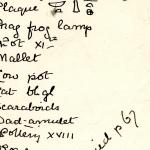 Plaque
frog lamp
Pot XI
Mallet
pot
bhgl
Scaraboids
Dad-amulet
Pottery XVIII
p 67